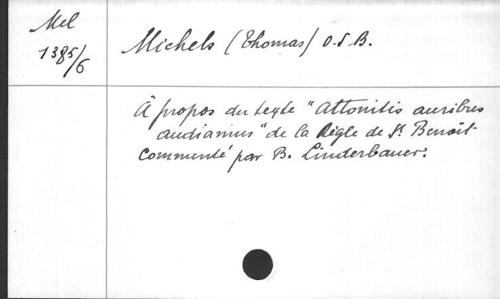 Mel
1385/6
Michels (Thomas) O.S.B.
À propos du texte "Attonitis auribus
audiamus" de la Règle de St Benoît
commenté par B. Linderbauer.